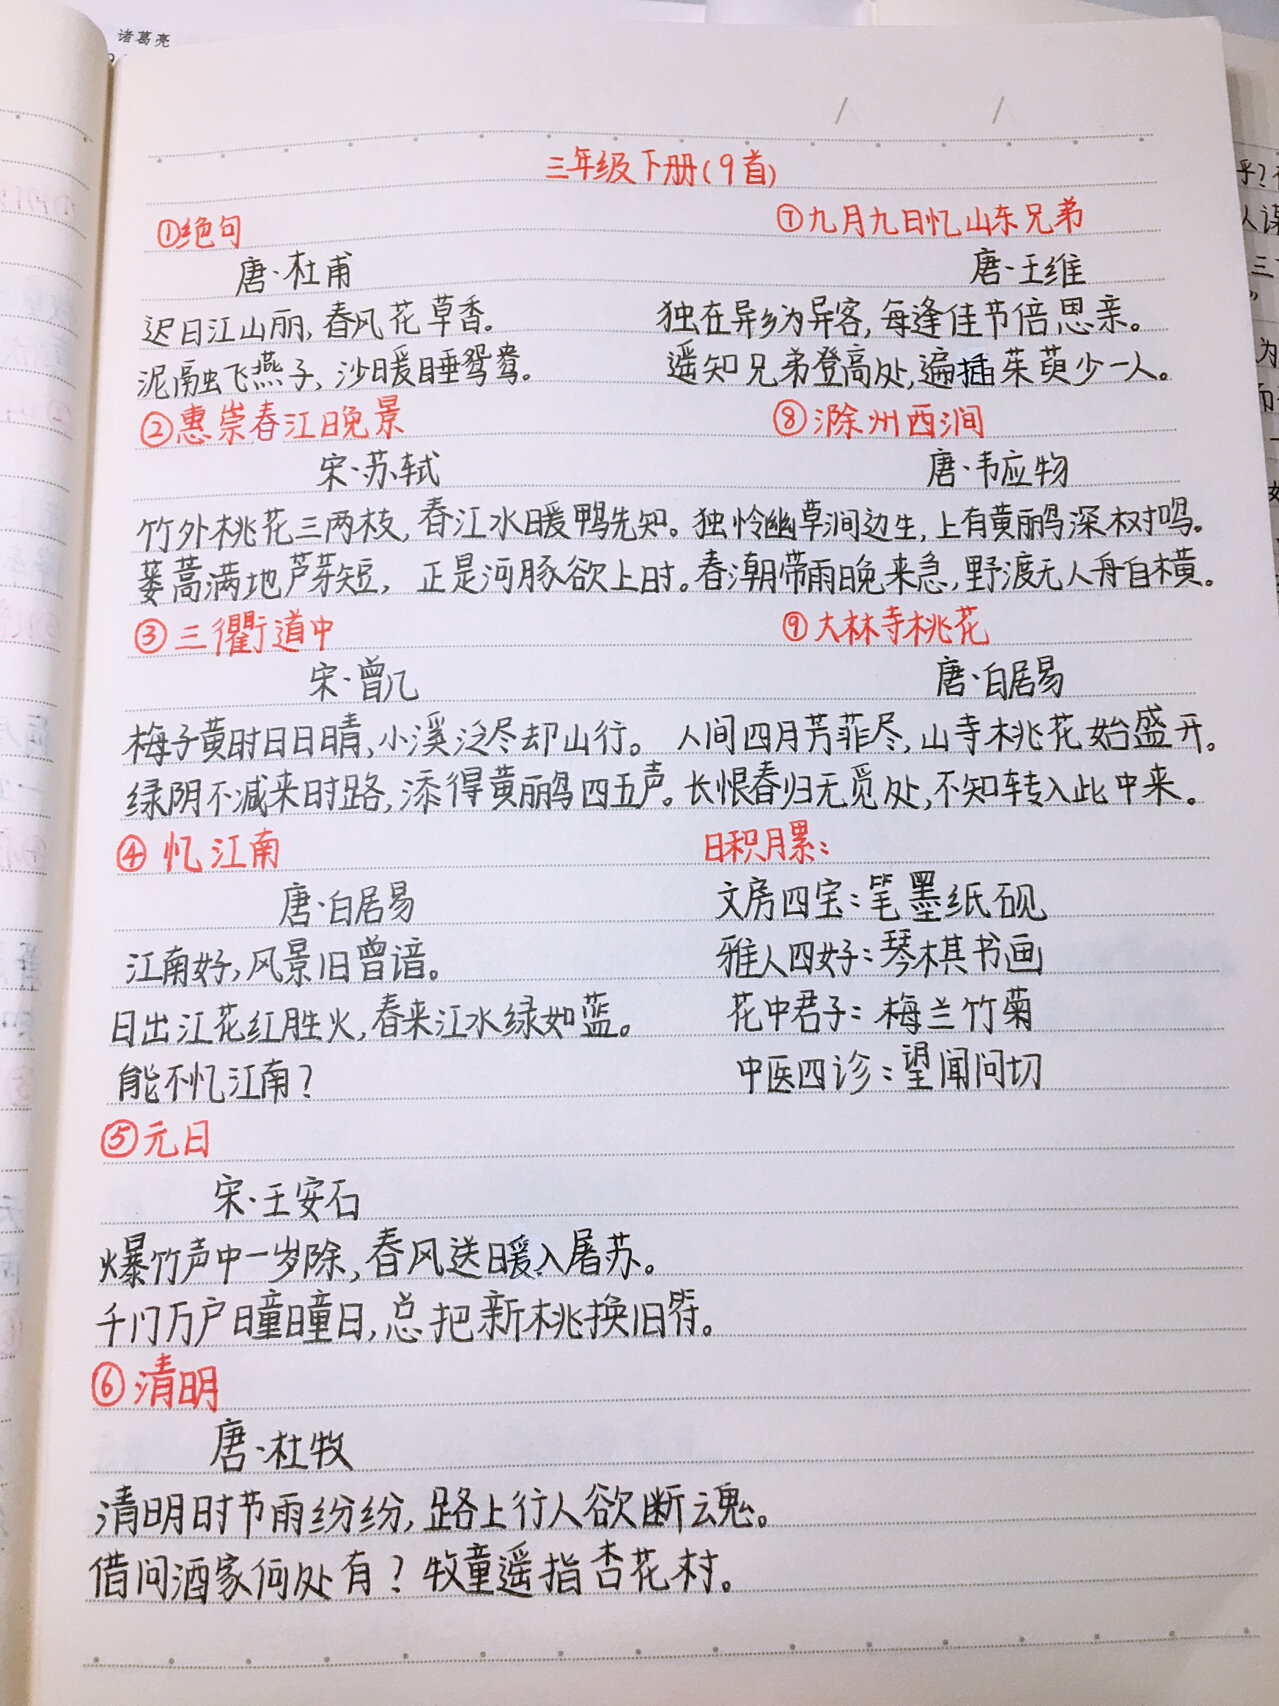 诸葛亮
三年级下册(9首)
①绝句
唐·杜甫
迟日江山丽,春风花草香。
泥融飞燕子,沙暖睡鸳鸯。
②惠崇春江晚景
宋·苏轼
竹外桃花三两枝,春江水暖鸭先知。
蒌蒿满地芦芽短,正是河豚欲上时。
③三衢道中
宋·曾几
梅子黄时日日晴,小溪泛尽却山行。
绿阴不减来时路,添得黄鹂四五声。
④忆江南
唐·白居易
江南好,风景旧曾谙。
日出江花红胜火,春来江水绿如蓝。
能不忆江南?
⑤元日
宋·王安石
爆竹声中一岁除,春风送暖入屠苏。
千门万户曈曈日,总把新桃换旧符。
⑥清明
唐·杜牧
清明时节雨纷纷,路上行人欲断魂。
借问酒家何处有?牧童遥指杏花村。
⑦九月九日忆山东兄弟
唐·王维
独在异乡为异客,每逢佳节倍思亲。
遥知兄弟登高处,遍插茱萸少一人。
⑧滁州西涧
唐·韦应物
独怜幽草涧边生,上有黄鹂深树鸣。
春潮带雨晚来急,野渡无人舟自横。
⑨大林寺桃花
唐·白居易
人间四月芳菲尽,山寺桃花始盛开。
长恨春归无觅处,不知转入此中来。
日积月累:
文房四宝:笔墨纸砚
雅人四好:琴棋书画
花中君子:梅兰竹菊
中医四诊:望闻问切